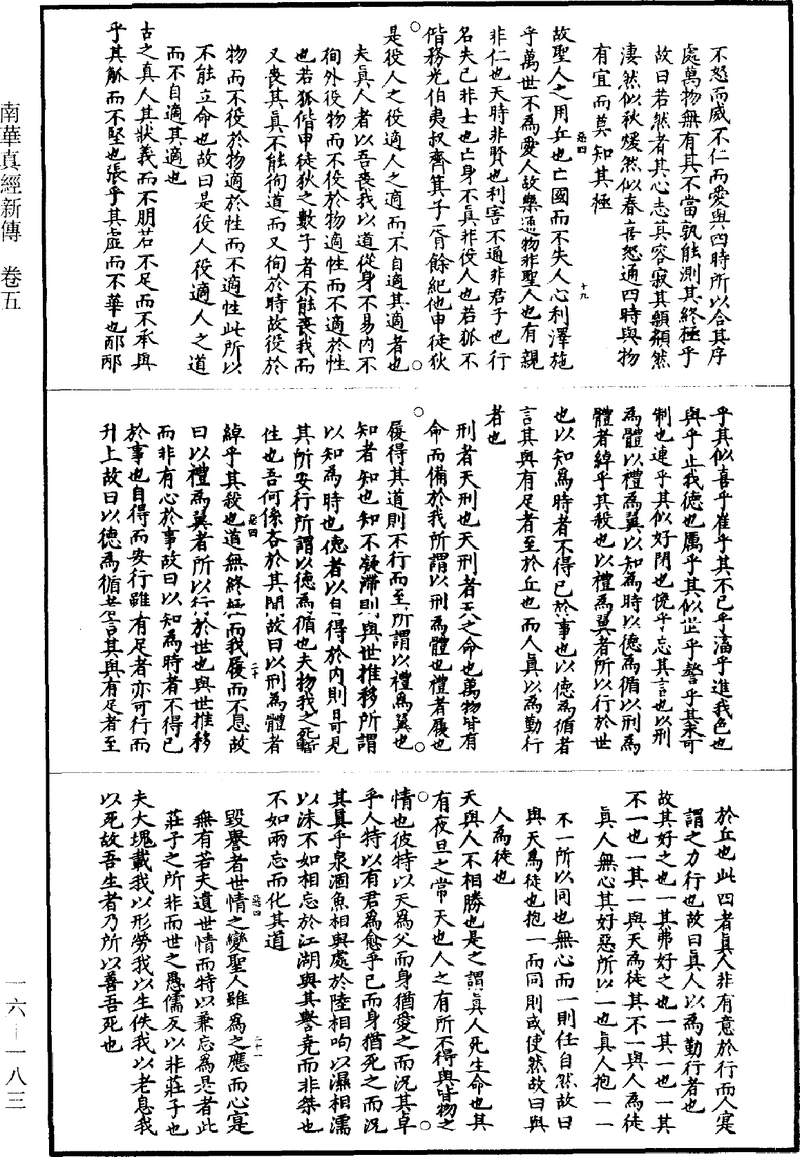 不怒而威不仁而愛與四時所以合其序
處萬物無有其不當孰能測其終極乎
故曰若然者其心志其容寂其顙頯然
淒然似秋煖然似春喜怒通四時與物
有宜而莫知其極
惡四
十九
故聖人之用兵也亡國而不失人心利澤施
乎萬世不為愛人故樂通物非聖人也有親
非仁也天時非賢也利害不通非君子也行
名失己非士也亡身不真非役人也若狐不
偕務光伯夷叔齊箕子胥餘紀他申徒狄
是役人之役適人之適而不自適其適者也
夫真人者以吾喪我以道從身不易內不
徇外役物而不役於物適性而不適於性
也若狐偕申徒狄之數子者不能喪我而
又喪其真不能徇道而又徇於時故役於
物而不役於物適於性而不適性此所以
不能立命也故曰是役人役適人之道
而不自適其適也
古之真人其狀義而不朋若不足而不承與
乎其觚而不堅也張乎其虛而不華也邴邴
乎其似喜乎崔乎其不已乎滀乎進我色也
與乎止我德也厲乎其似世乎謷乎其未可
制也連乎其似好閉也悗乎忘其言也以刑
為體以禮為翼以知為時以德為循以刑為
體者綽乎其殺也以禮為翼者所以行於世
也以知為時者不得已於事也以德為循者
言其與有足者至於丘也而人真以為勤行
者也
刑者天刑也天刑者天之命也萬物皆有
命而備於我所謂以刑為體也禮者履也
履得其道則不行而至所謂以禮為翼也
知者知也知不凝滯則與世推移所謂
以知為時也德者以自得於內則可見
其所安行所謂以德為循也夫物我之
性也吾何係吝於其間故曰以刑為體者
惡四
二十
綽乎其殺也道無終極而我履而不息故
曰以禮為翼者所以行於世也與世推移
而非有心於事故曰以知為時者不得已
於事也自得而安行雖有足者亦可行而
升上故曰以德為循者言其與有足者至
於丘也此四者真人非有意於行而人寔
謂之力行也故曰真人以為勤行者也
故其好之也一其弗好之也一其一也一其
不一也一其一與天為徒其不一與人為徒
真人無心其好惡所以一也真人抱一一
不一所以同也無心而一則任自然故曰
與天為徒也抱一而同則或使然故曰與
人為徒也
天與人不相勝也是之謂真人死生命也其
有夜旦之常天也人之有所不得與皆物之
情也彼特以天為父而身猶愛之而況其卓
乎人特以有君為愈乎己而身猶死之而況
其真乎泉涸魚相與處於陸相呴以濕相濡
以沫不如相忘於江湖與其譽堯而非桀也
不如兩忘而化其道
惡四
二十一
毀譽者世情之變聖人雖為之應而心寔
無有若夫遺世情而特以兼忘為是者此
莊子之所非而世之愚儒反以非莊子也
夫大塊載我以形勞我以生佚我以老息我
以死故吾生者乃所以善吾死也
南華真經新傳 卷五
一六－一八三